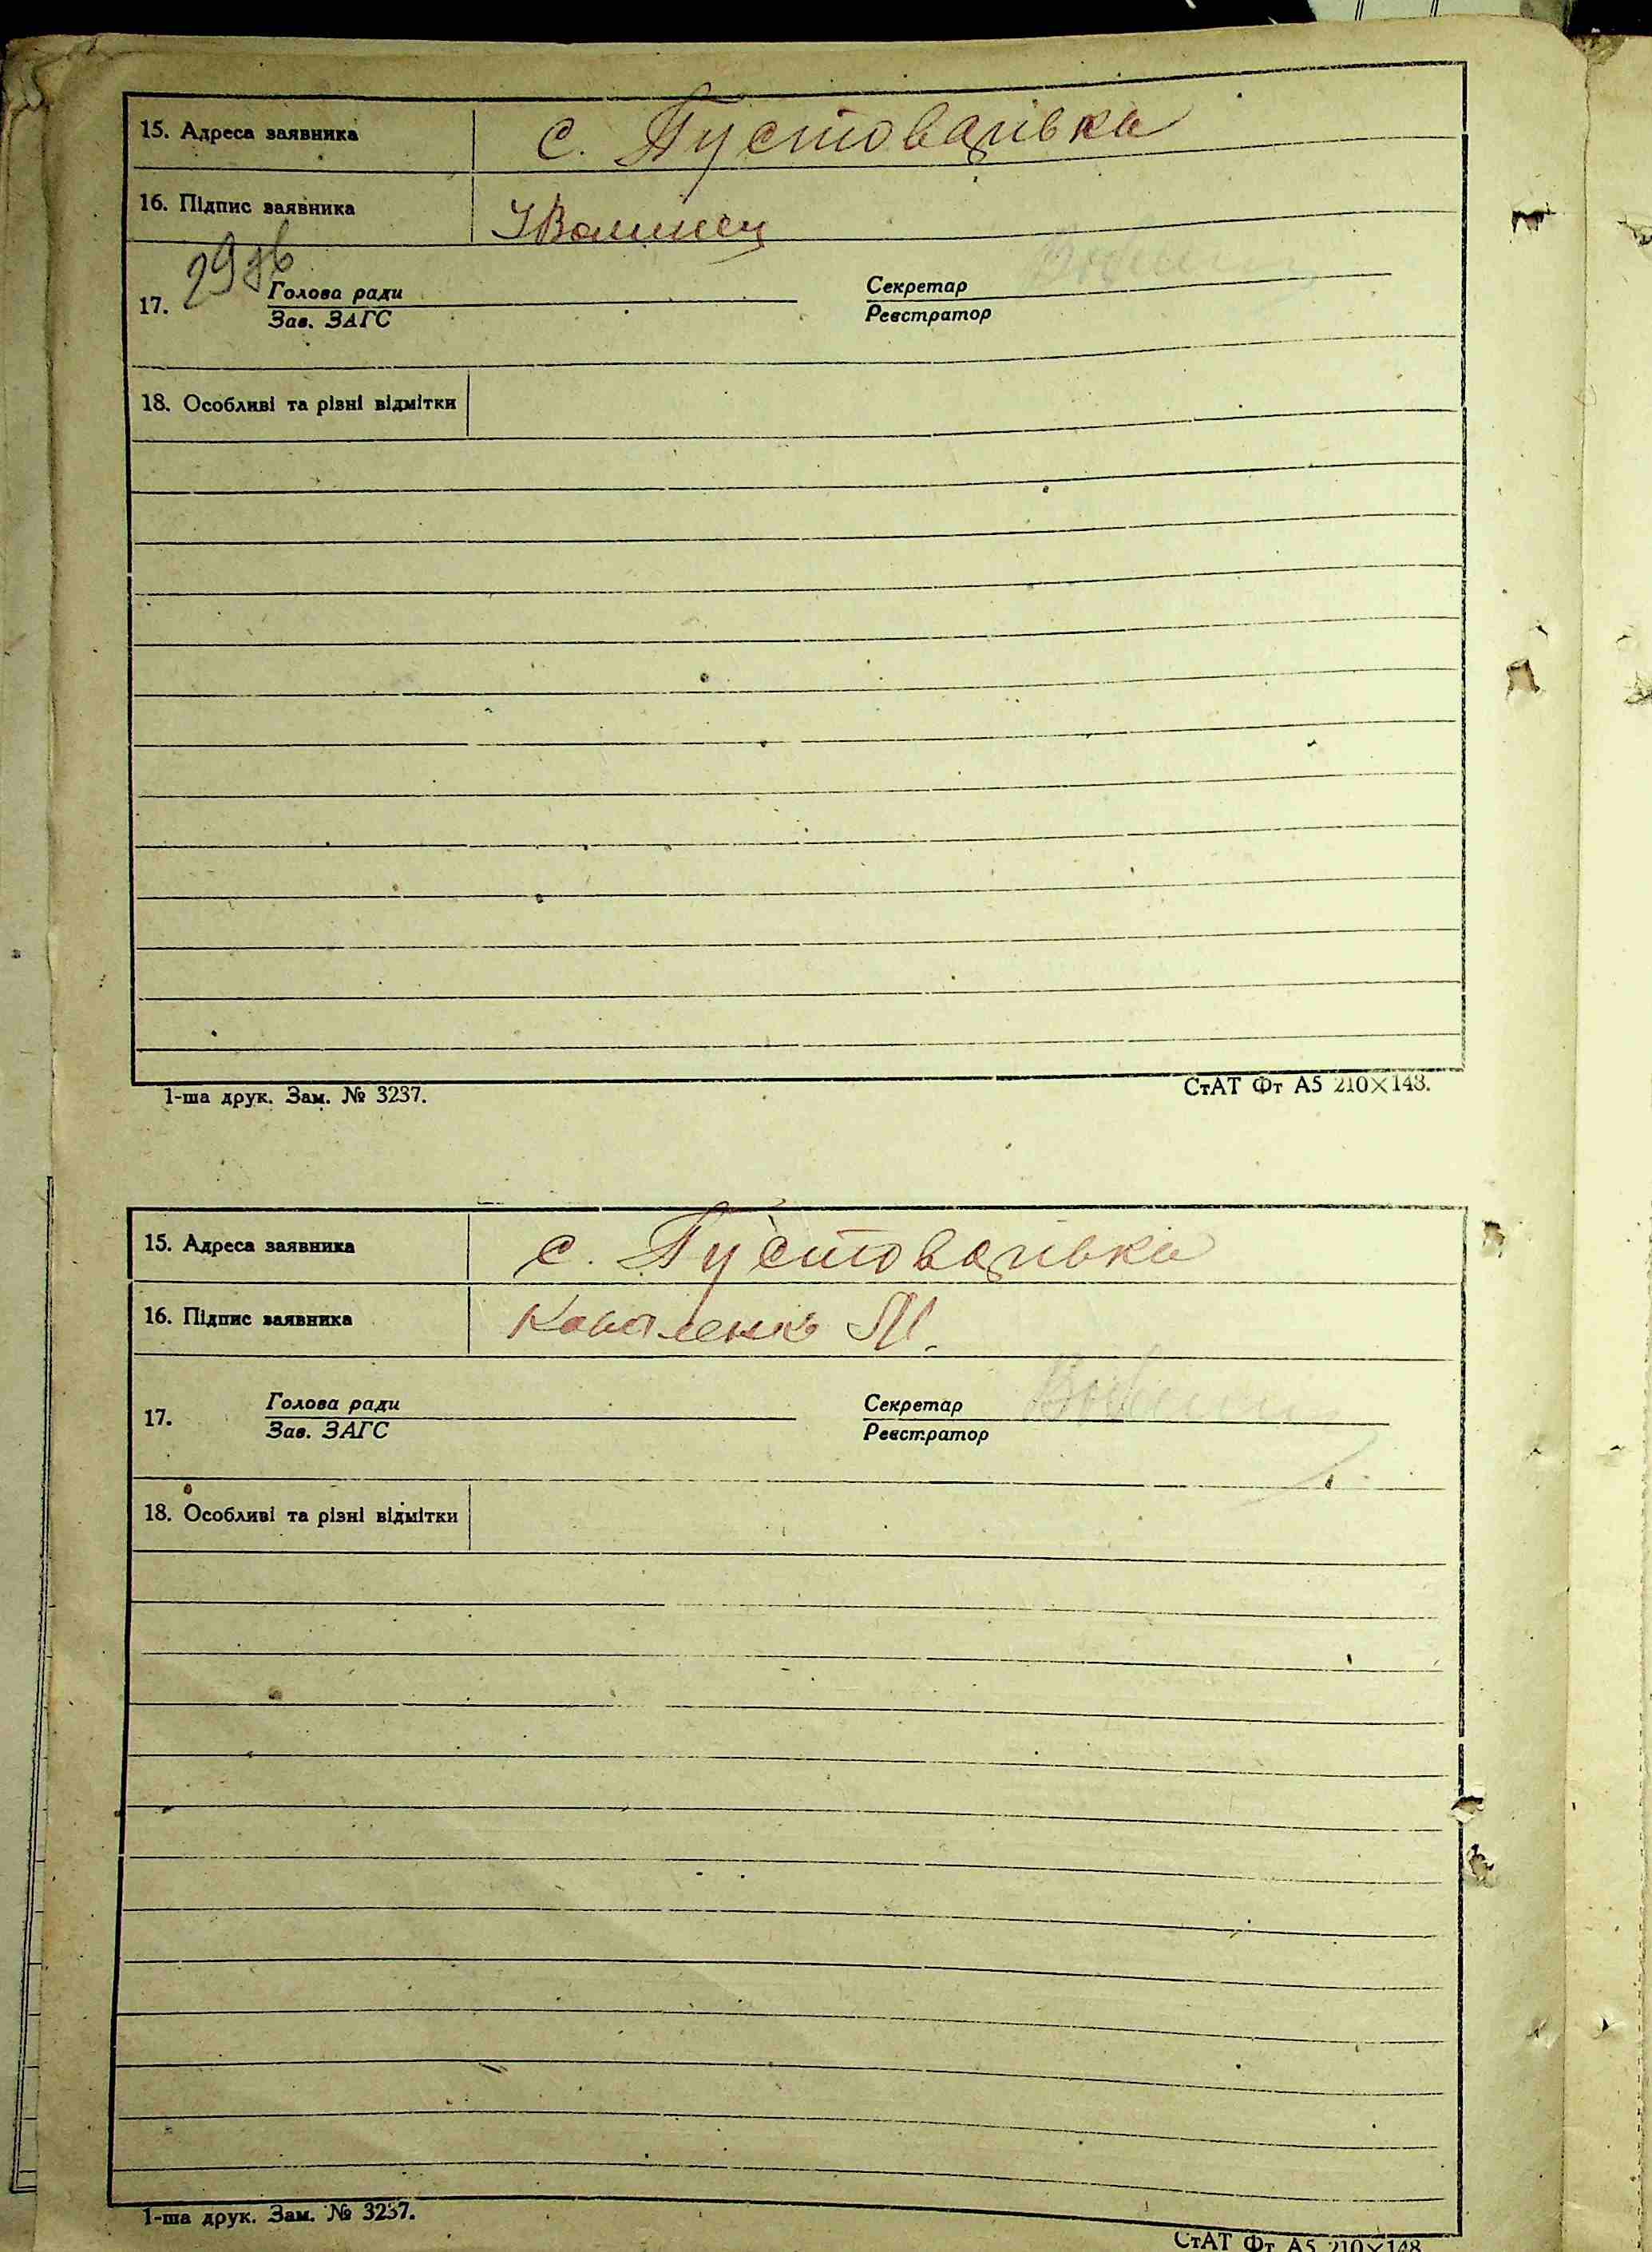 15. Адреса заявника с. Пустоварівка
16. Підпис заявника ІВолинец
29 зв
17. Голова ради Секретар
Зав. ЗАГС Реєстратор
18. Особливі та різні відмітки
1-ша друк. Зам. № 3237. СтАТ Фт А5 210×148.
15. Адреса заявника с. Пустоварівка
16. Підпис заявника Коваленко
17. Голова ради Секретар
Зав. ЗАГС Реєстратор
18. Особливі та різні відмітки
1-ша друк. Зам. № 3237.
СтАТ Фт А5 210×148